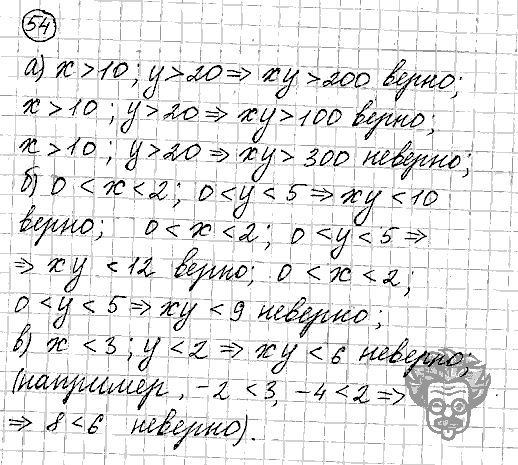 54
а) x > 10; y > 20 ⇒ xy > 200 верно;
x > 10; y > 20 ⇒ xy > 100 верно;
x > 10; y > 20 ⇒ xy > 300 неверно;
б) 0 < x < 2; 0 < y < 5 ⇒ xy < 10
верно; 0 < x < 2; 0 < y < 5 ⇒
⇒ xy < 12 верно; 0 < x < 2;
0 < y < 5 ⇒ xy < 9 неверно;
в) x < 3; y < 2 ⇒ xy < 6 неверно;
(например, -2 < 3, -4 < 2 ⇒
⇒ 8 < 6 неверно).